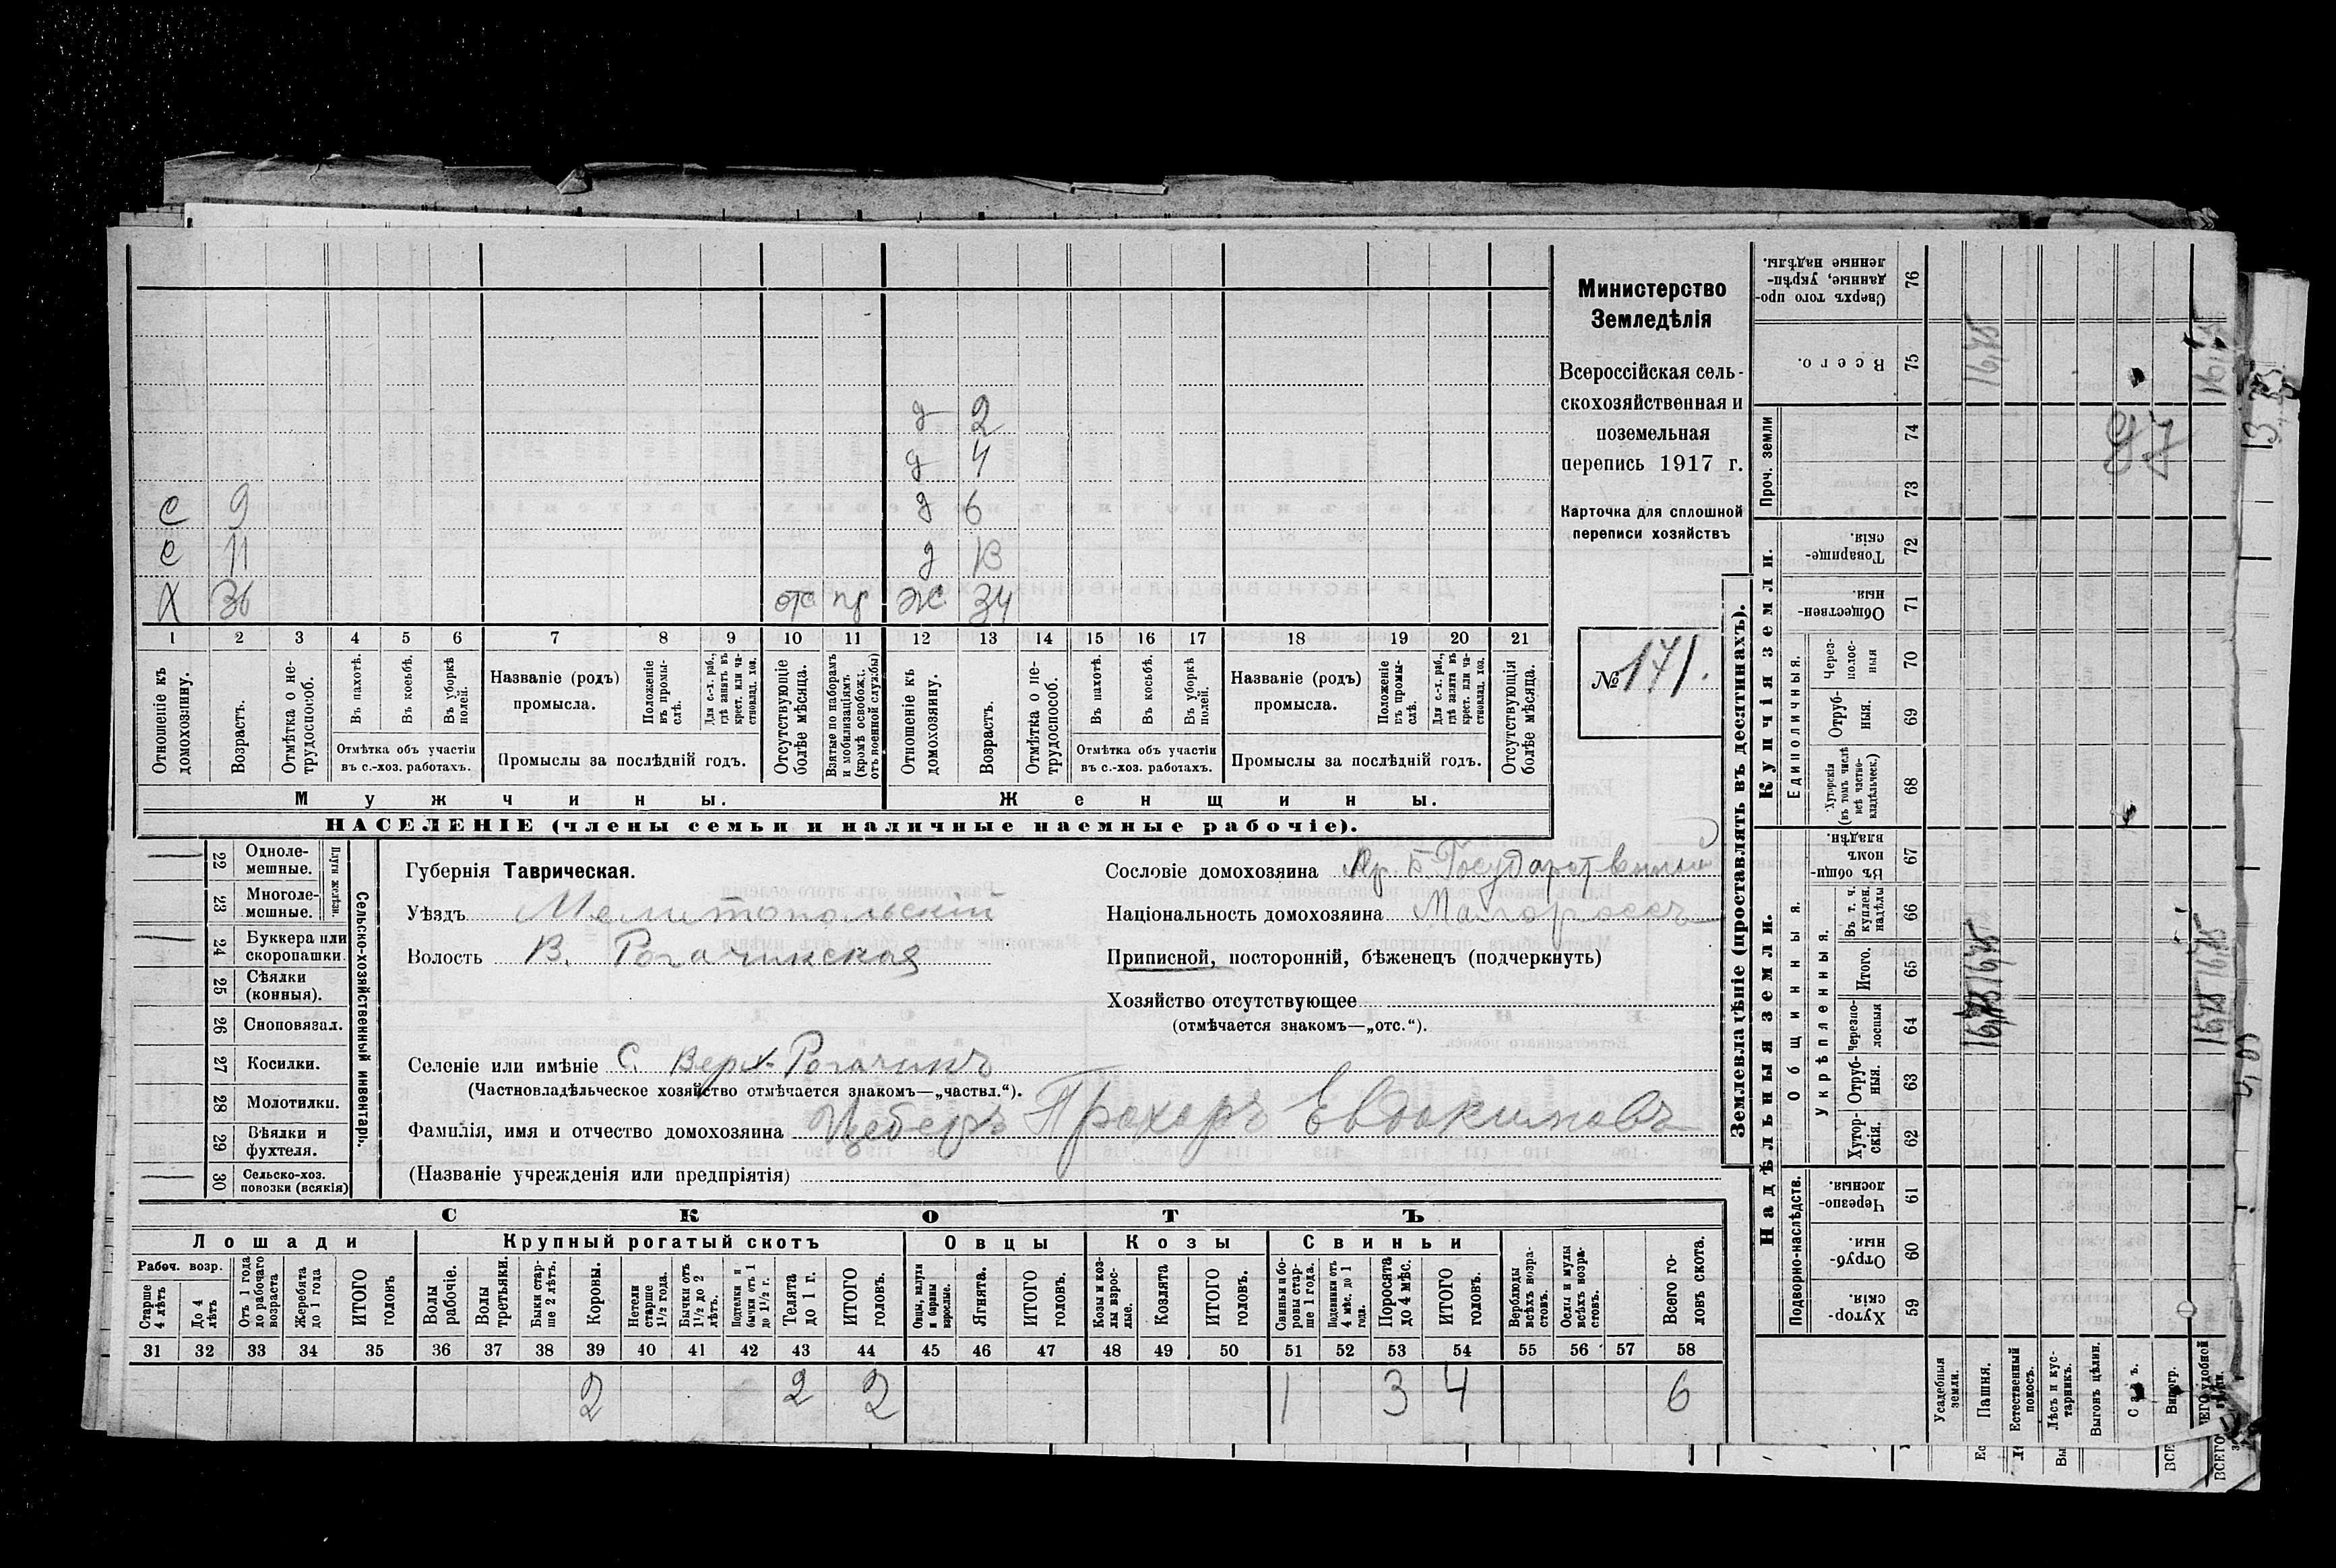 Министерство
Земледѣлія
Всероссійская сель-
скохозяйственная и
поземельная
перепись 1917 г.
Карточка для сплошной
переписи хозяйствъ
№ 171.
д 2
д 4
с 9 д 6
с 11 д 13
х 36 отс пр ж 34
1 2 3 4 5 6 7 8 9 10 11 12 13 14 15 16 17 18 19 20 21
Отношеніе къ домохозяину.
Возрастъ.
Отмѣтка о не-трудоспособ.
Въ пахотѣ.
Въ косьбѣ.
Въ уборкѣ полей.
Отмѣтка объ участіи
въ с.-хоз. работахъ.
Названіе (родъ)
промысла.
Положеніе въ промы-слѣ.
Для с.-х. раб., гдѣ занятъ въ крест. или ча-стновлад. хоз.
Промыслы за послѣдній годъ.
Отсутствующіе болѣе мѣсяца.
Взятые по наборамъ и мобилизаціямъ (кромѣ освобожд. отъ военной службы)
Отношеніе къ домохозяину.
Возрастъ.
Отмѣтка о не-трудоспособ.
Въ пахотѣ.
Въ косьбѣ.
Въ уборкѣ полей.
Отмѣтка объ участіи
въ с.-хоз. работахъ.
Названіе (родъ)
промысла.
Положеніе въ промы-слѣ.
Для с.-х. раб., гдѣ занята въ крест. или ча-стновлад. хоз.
Промыслы за послѣдній годъ.
Отсутствующія болѣе мѣсяца.
Мужчины.
Женщины.
НАСЕЛЕНІЕ (члены семьи и наличные наемные рабочіе).
Сельско-хозяйственный инвентарь.
Плуги желѣзн.
22 Одноле-мешные.
23 Многоле-мешные.
24 Буккера или скоропашки.
25 Сѣялки (конныя).
26 Сноповязал.
27 Косилки.
28 Молотилки.
29 Вѣялки и фухтеля.
30 Сельско-хоз. повозки (всякія)
Губернія Таврическая.
Уѣздъ Мелитопольскій
Волость В. Рогачикская
Сословіе домохозяина Кр. б. Государственный
Національность домохозяина Малороссъ
Приписной, посторонній, бѣженецъ (подчеркнуть)
Хозяйство отсутствующее
(отмѣчается знакомъ—„отс.“).
Селеніе или имѣніе С. Верх. Рогачикъ
(Частновладѣльческое хозяйство отмѣчается знакомъ—„частвл.“).
Фамилія, имя и отчество домохозяина Цеберъ Прохоръ Евдокимовъ
(Названіе учрежденія или предпріятія)
СКОТЪ
Лошади
Крупный рогатый скотъ
Овцы
Козы
Свиньи
Рабоч. возр.
Старше 4 лѣтъ
До 4 лѣтъ
Отъ 1 года до рабочаго возраста
Жеребята до 1 года
ИТОГО головъ
Волы рабочіе.
Волы третьяки.
Быки стар-ше 2 лѣтъ.
Коровы.
Нетели старше 1½ года.
Бычки отъ 1½ до 2 лѣтъ.
Подтелки и бычки отъ 1 до 1½ г.
Телята до 1 г.
ИТОГО головъ.
Овцы, валухи и бараны взрослые.
Ягнята.
ИТОГО головъ.
Козы и коз-лы взрос-лые.
Козлята
ИТОГО головъ.
Свиньи и бо-ровы стар-ше 1 года.
Подсвинки отъ 4 мѣс. до 1 года.
Поросята до 4 мѣс.
ИТОГО головъ.
Верблюды всѣхъ возра-стовъ.
Ослы и мулы всѣхъ возра-стовъ.
Всего го-ловъ скота.
31 32 33 34 35 36 37 38 39 40 41 42 43 44 45 46 47 48 49 50 51 52 53 54 55 56 57 58
2 2 2 1 3 4 6
Землевладѣніе (проставлять въ десятинахъ).
Надѣльныя земли.
Купчія земли.
Проч. земли
Подворно-наслѣдств.
Общинныя.
Укрѣпленныя.
Единоличныя.
Сверхъ того про-данные, укрѣп-ленные надѣлы. 76
Всего. 75
74
73
Товарище-скія. 72
Обществен-ныя. 71
Через-полос-ныя 70
Отруб-ныя. 69
Хуторскія (въ томъ числѣ всѣ частно-владѣльческ.) 68
Въ общин-номъ владѣн. 67
Въ т. ч. куплен. надѣлы 66
Итого. 65
Черезпо-лосныя 64
Отруб-ныя. 63
Хутор-скія. 62
Черезпо-лосныя. 61
Отруб-ныя. 60
Хутор-скія. 59
Усадебныя земли.
Пашня.
Естественный покосъ.
Лѣсъ и кус-тарникъ.
Выгонъ цѣлин.
Садъ.
Виногр.
16,75
16,75
16,75
16,75
16,75
97